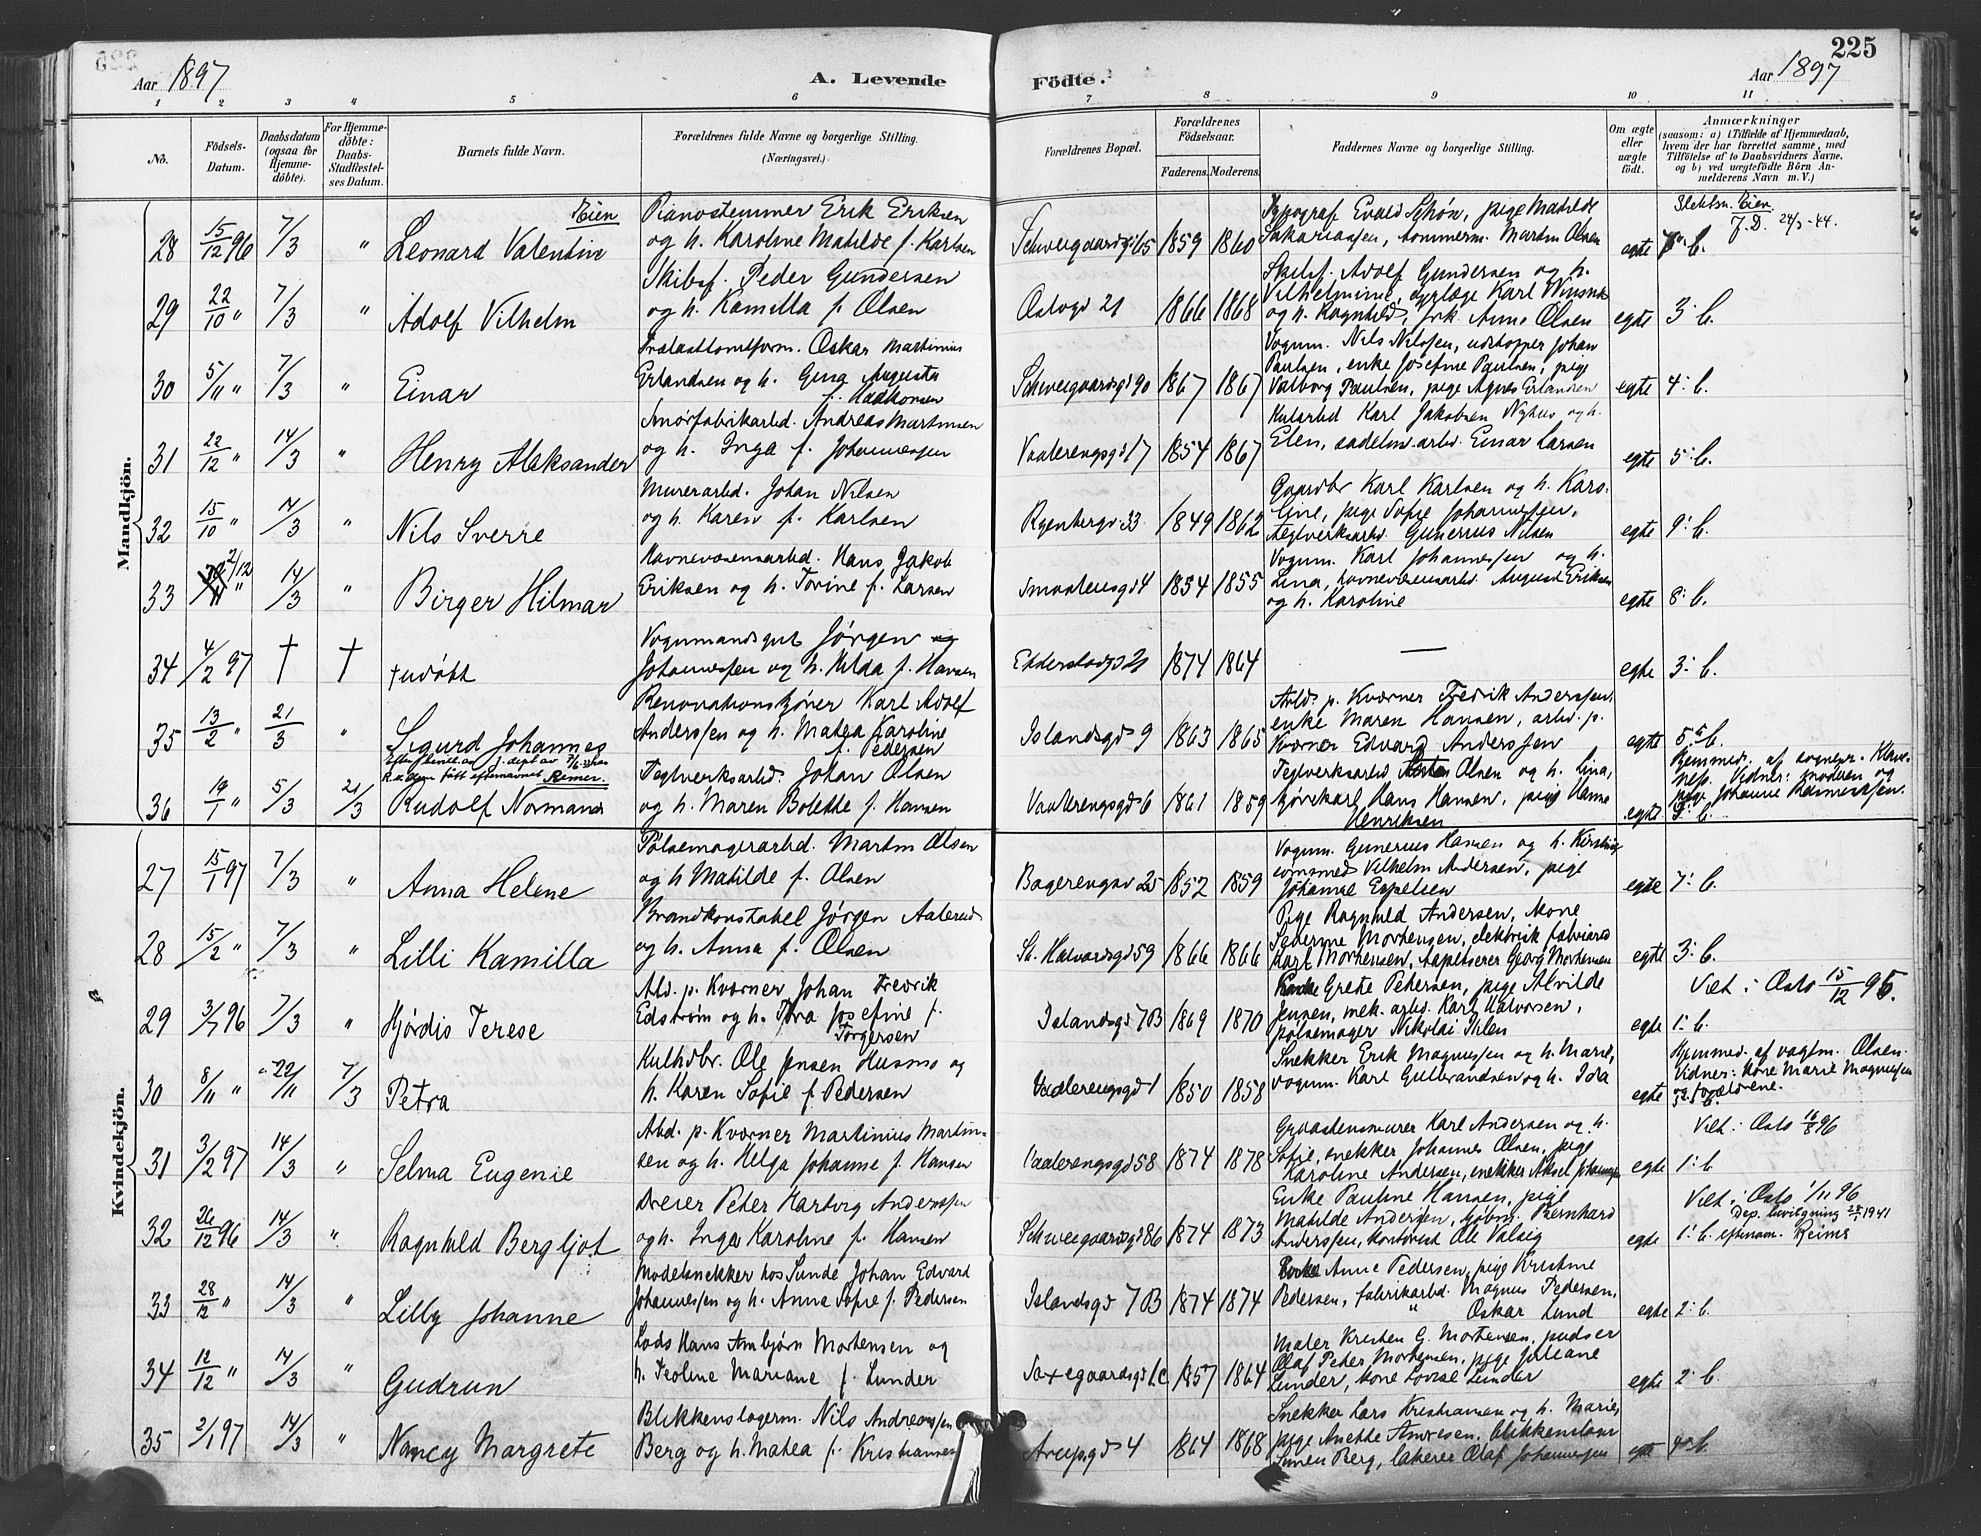 225
Aar 1897
A. Levende Födte.
Aar 1897
1 2 3 4 5 6 7 8 9 10 11
No.
Födsels-Datum.
Daabsdatum (ogsaa for Hjemmedöbte).
For Hjemmedöbte: Daabs-Stadfæstelses Datum.
Barnets fulde Navn.
Forældrenes fulde Navne og borgerlige Stilling.
(Næringsvei.)
Forældrenes Bopæl.
Forældrenes Födselsaar.
Faderens. Moderens.
Faddernes Navne og borgerlige Stilling.
Om ægte eller uægte födt.
Anmærkninger
(saasom: a) i Tilfælde af Hjemmedaab, hvem der har forrettet samme, med Tilföielse af to Daabsvidners Navne. og b) ved uægtefödte Börn Anmelderens Navn m. V.)
Mandkjön.
28 15/12 96 7/3 " Leonard Valentin Eien
Pianostemmer Erik Eriksen
og h. Karoline Matilde f. Karlsen
Schweigaardsgd 65 1859 1860
Typograf Evald Schön, pige Matilde
Sakariassen, tommerm. Martin Olsen
egte
Slektsn. Eien
J.D. 24/3-44.
29 22/10 " 7/3 " Adolf Vilhelm
Skibsf. Peder Gundersen
og h. Kamilla f. Olsen
Oslogd 21 1866 1868
Skibsf. Adolf Gundersen og h.
Vilhelmine, Karl
og h. Ragnhild, frk. Anne Olsen
egte 3: b.
30 5/11 " 7/3 " Einar
Oskar Martinius
Erlandsen og h. Gina Augusta
f. Haakonsen
Schweigaardsgd 90 1867 1867
Vognm. Nils Nilssen, udstopper Johan
Paulsen, enke Josefine Paulsen, pige
Valborg Paulsen, pige Agnes Erlandsen
egte 4: b.
31 22/12 " 14/3 " Henry Aleksander
Smörfabrikarbd. Andreas Martinsen
og h. Inga f. Johannessen
Vaalerengsgd 17 1854 1867
Kularbd Karl Jakobsen Nyhus og h.
Elen, sadelm.arbd. Einar Larsen
egte 5: b.
32 15/10 " 14/3 " Nils Sverre
Murerarbd. Johan Nilsen
og h. Karen f. Karlsen
Ryenbergv 33 1849 1862
Gaardbr Karl Karlsen og h. Karo-
line, pige Sofie Johannessen,
teglverksarbd. Gunerius Nilsen
egte 9: b.
33 2/12 " 14/3 " Birger Hilmar
Havnevæsensarbd. Hans Jakob
Eriksen og h. Torine f. Larsen
Smaalensgd 4 1854 1855
Vognm. Karl Johannessen og h.
Lina, havnevæsensarbd. August Eriksen
og h. Karoline
egte 8: b.
34 4/2 97 † † † udöbt
Vognmandsgut Jørgen
Johannessen og h. Hilda f. Hansen
1874 1864 —
egte 3: b.
35 13/2 " 21/3 " Sigurd Johannes
Renovationskjörer Karl Adolf
Anderssen og h. Matea Karoline
f. Pedersen
Islandsgd 9 1863 1865
Arbd. p. Kværner Fredrik Anderssen,
enke Maren Hansen, arbd. p.
Kværner Edvard Anderssen
egte 5: b.
36 19/1 " 5/3 21/3 Rudolf Normann
Rimer.
Teglverksarbd. Johan Olsen
og h. Maren Bolette f. Hansen
Vaalerengsgd 6 1861 1859
Teglverksarbd Olsen og h. Lina,
Hans Hansen, pige Hanna
Henriksen
egte
Hjemmed. af sognepr. Klave-
ness. Vidner: moderen og
pige Johanne Rasmussen.
Kvindekjön.
27 15/1 97 7/3 " Anna Helene
Pölsemagerarbd. Martin Olsen
og h. Matilde f. Olsen
Bøgerengsv 25 1852 1859
Vognm. Gunerius Hansen og h. Kirstine
Vilhelm Andersen, pige
Johanne Espelsen
egte 7: b.
28 15/2 " 7/3 " Lilli Kamilla
Brandkonstabel Jørgen Aalerud
og h. Anna f. Olsen
St. Halvardsgd 59 1866 1866
Pige Ragnhild Andersen, kone
Severine Mortensen,
Karl Mortensen, tapetserer Georg Mortensen
egte 3: b.
29 3/7 96 7/3 " Hjördis Terese
Abd. p. Kværner Johan Fredrik
Edström og h. Tora Josefine f.
Torgersen
Islandsgd 7B 1869 1870
Enke Grete Petersen, pige Alvilde
Jensen, mek. arbd. Karl Halvorsen,
pölsemager Nikolai Ihlen
egte 1: b.
Viet i Oslo 15/12 95.
30 8/11 " 22/11 7/3 Petra
Kulhdbr. Ole Jensen Husmo og
h. Karen Sofie f. Pedersen
Vaalerengsgd 1 1850 1858
Snekker Erik Magnussen og h. Marie,
vognm. Karl Gulbrandsen og h. Ida
egte
Hjemmed. af vagtm. Olsen.
Vidner: kone Marie Magnussen
og forældrene.
31 3/2 97 14/3 " Selma Eugenie
Abd. p. Kværner Martinius Martin-
sen og h. Helga Johanne f. Hansen
Vaalerengsgd 58 1874 1878
Graastensmurer Karl Andersen og h.
Sofie, snekker Johannes Olsen, pige
Karoline Andersen, snekker Aksel Johannessen
egte 1: b
Viet i Oslo 16/8 96
32 26/12 96 14/3 " Ragnhild Bergljot
Dreier Peter Hartvig Anderssen
og h. Inga Karoline f. Hansen
Schweigaardsgd 86 1874 1873
Enke Pauline Hansen, pige
Matilde Andersen, Bernhard
Anderssen, kontorist Ole Valsig
egte 1: b.
Viet i Oslo 1/11 96
Dep. bevilgning 28/1 1941
efternavn. Reims
33 28/12 " 14/3 " Lilly Johanne
Modelsnekker hos Sunde Johan Edvard
Johannessen og h. Anna Sofie f. Pedersen
Islandsgd 7B 1874 1874
Enke Anne Pedersen, pige Kristine
Pedersen, fabrikarbd. Magnus Pedersen,
" Oskar Lund
egte 2: b.
34 12/12 " 14/3 " Gudrun
Lods Hans Arnbjørn Mortensen og
h. Teoline Mariane f. Lunder
Saxegaardsgd 1c 1857 1864
Maler Kristen G. Mortensen, pudser
Olaf Peter Mortensen, pige Juliane
Lunder, kone Lovise Lunder
egte 2: b.
35 2/1 97 14/3 " Nancy Margrete
Blikkenslagerm. Nils Andreassen
Berg og h. Matea f. Kristiansen
Arupsgd 4 1864 1868
Snekker Lars Kristiansen og h. Marie,
pige Anette Andresen, blikkenslager
Simen Berg, lakerer Olaf Johannessen
egte